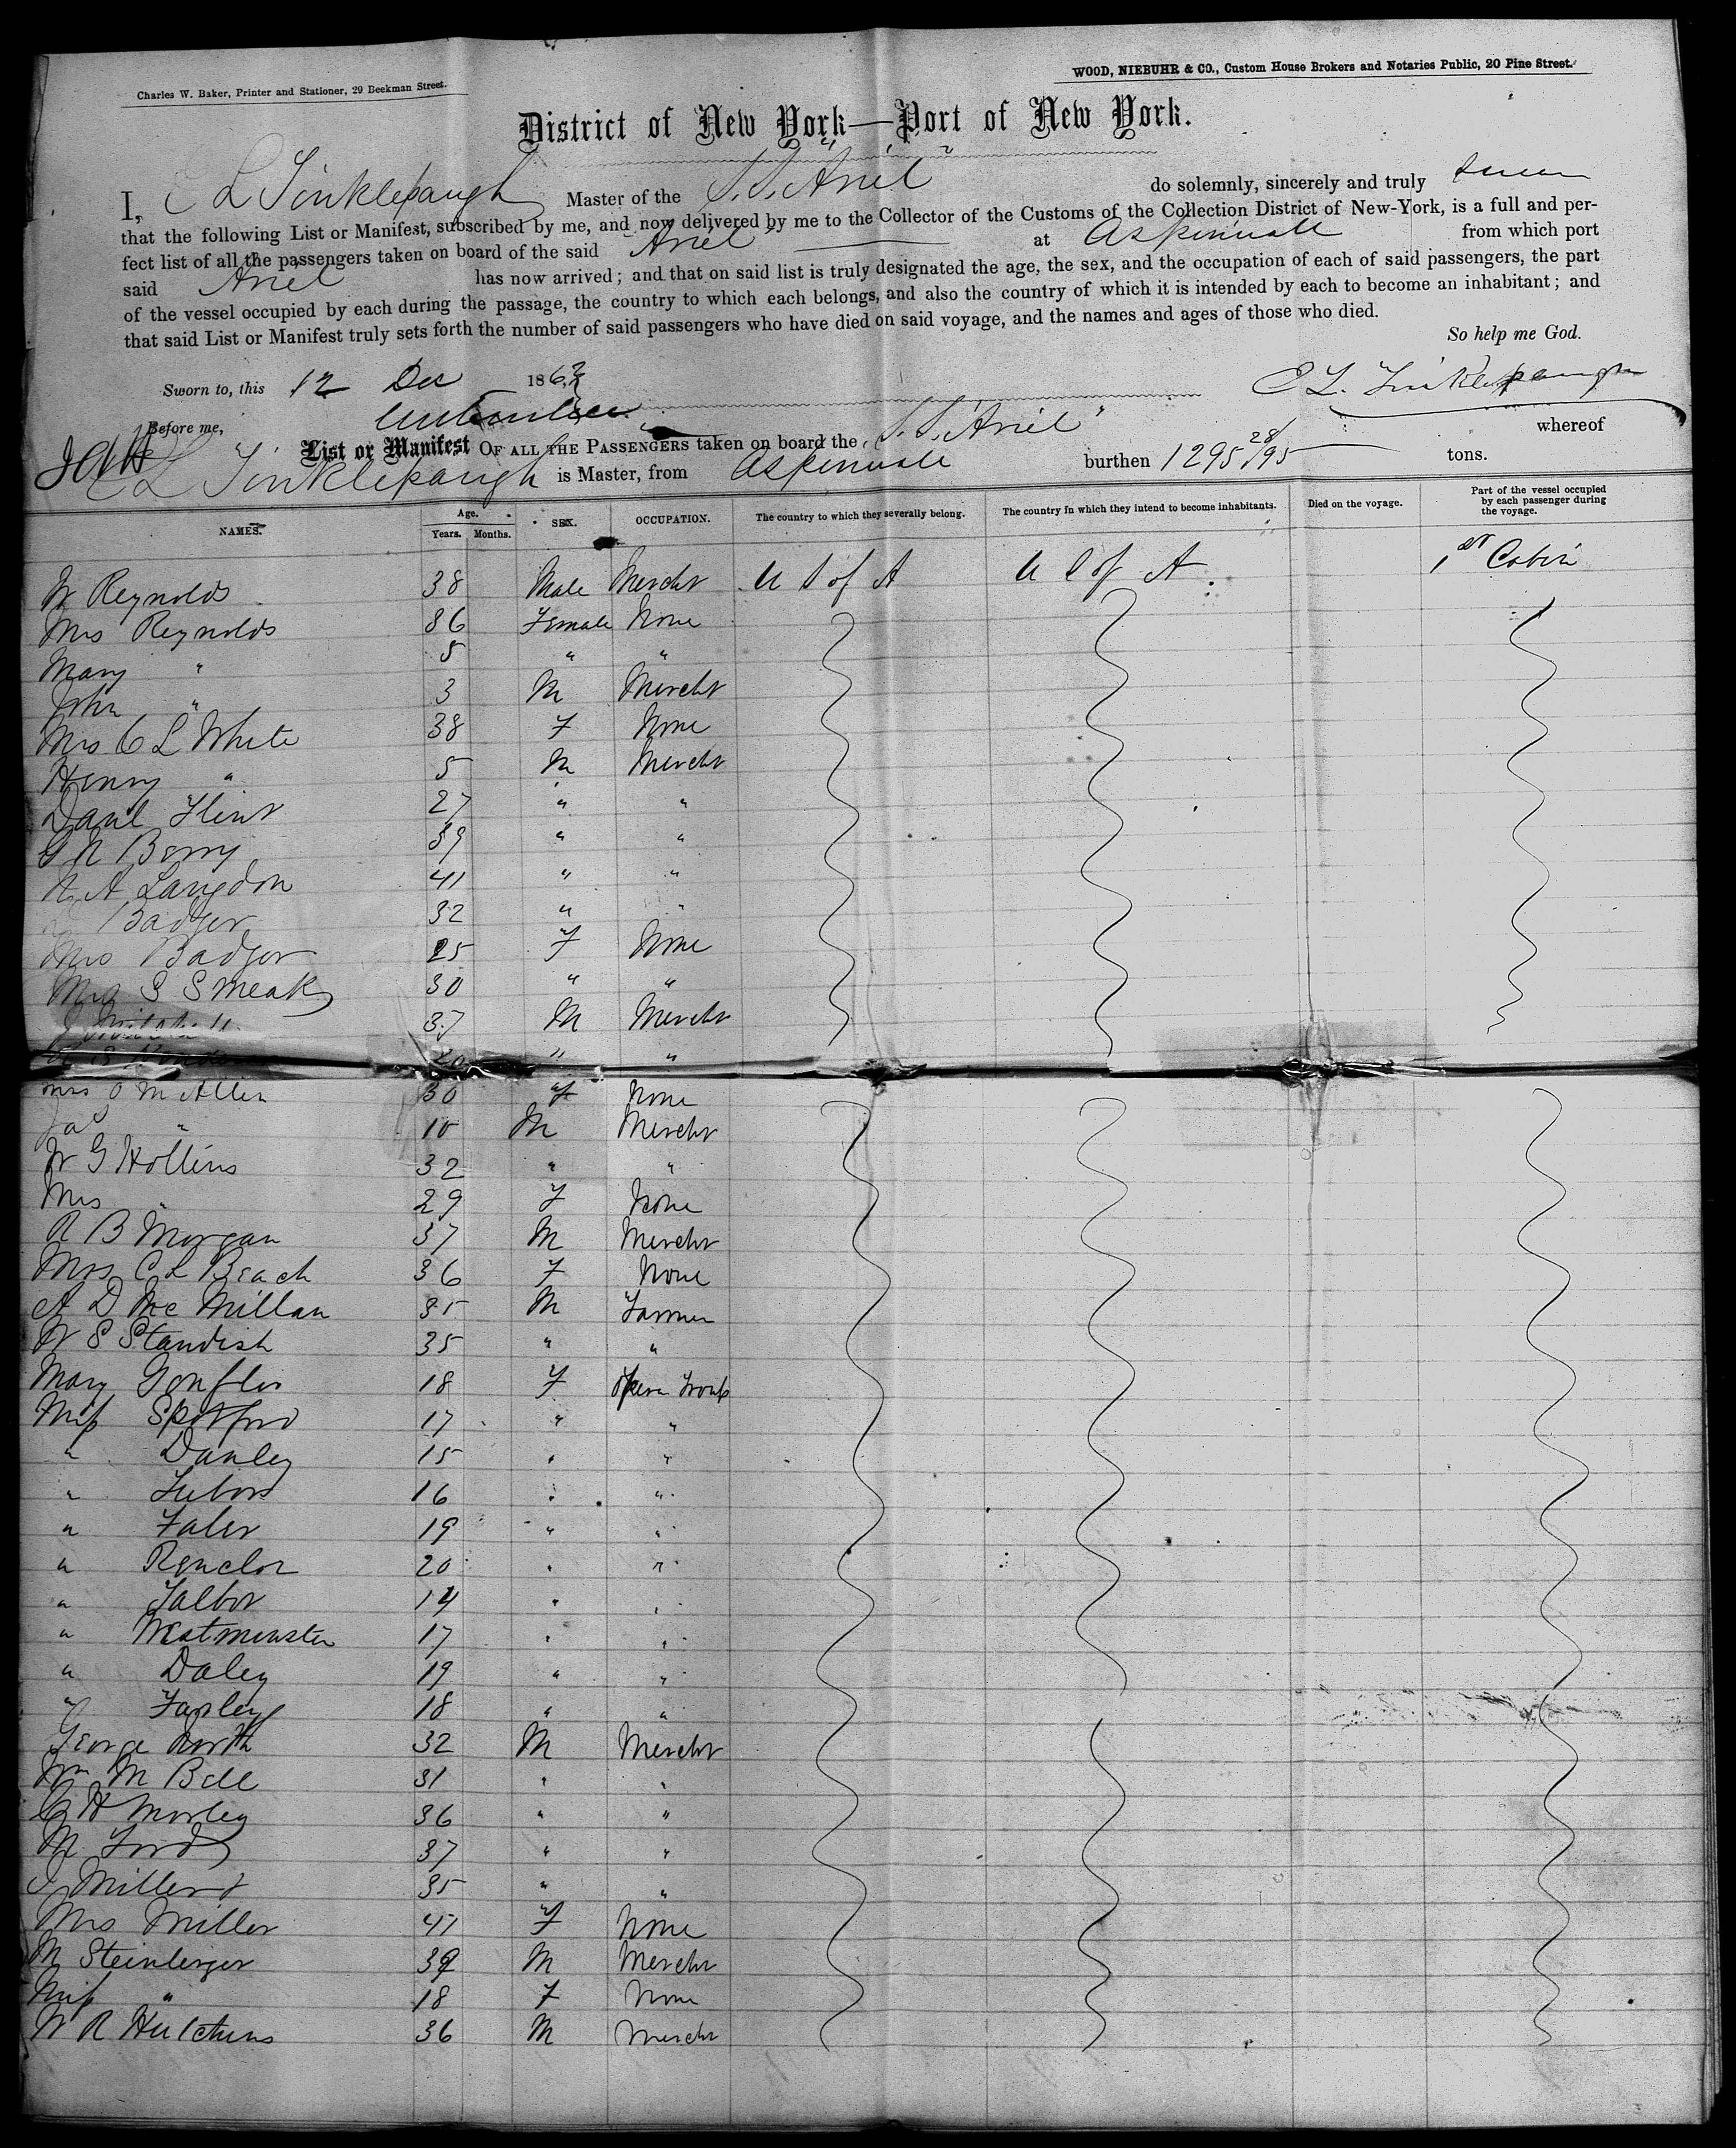 Charles W. Baker, Printer and Stationer, 29 Beekman Street.
WOOD, NIEBUHR & CO., Custom House Brokers and Notaries Public, 20 Pine Street.
District of New York—Port of New York.
I, C L Tinklepaugh Master of the S.S. "Ariel" do solemnly, sincerely and truly swear
that the following List or Manifest, subscribed by me, and now delivered by me to the Collector of the Customs of the Collection District of New-York, is a full and per-
fect list of all the passengers taken on board of the said "Ariel" at Aspinwall from which port
said Ariel has now arrived; and that on said list is truly designated the age, the sex, and the occupation of each of said passengers, the part
of the vessel occupied by each during the passage, the country to which each belongs, and also the country of which it is intended by each to become an inhabitant; and
that said List or Manifest truly sets forth the number of said passengers who have died on said voyage, and the names and ages of those who died.
So help me God.
Sworn to, this 12 Dec 186
C L. Tinklepaugh
Before me,
List or Manifest OF ALL THE PASSENGERS taken on board the S.S. "Ariel" whereof
C L Tinklepaugh is Master, from Aspinwall burthen 1295 28/95 tons.
NAMES. Age. Years. Months. SEX. OCCUPATION. The country to which they severally belong. The country in which they intend to become inhabitants. Died on the voyage. Part of the vessel occupied by each passenger during the voyage.
W Reynolds 38 Male Mercht U S of A U S of A 1st Cabin
Mrs Reynolds 36 Female None
Mary " 5 " "
John " 3 M Mercht
Mrs C L White 38 F None
Henry " 5 M Mercht
Danl Flint 27 " "
G N Berry 39 " "
A Langdon 41 " "
Badger 32 " "
Mrs Badger 25 F None
Mrs S S Meak 30 " "
J Mitchell 37 M Mercht
20 " "
Mrs O M Allen 30 F None
Jas " 10 M Mercht
W G Hollins 32 " "
Mrs " 29 F None
R B Morgan 37 M Mercht
Mrs C L Beach 36 F None
A D McMillan 35 M Farmer
W S Standish 35 " "
Mary 18 F Opera Troup
Miss Spotford 17 " "
" Danley 15 " "
" 16 " "
" Faler 19 " "
" Renclor 20 " "
" Talbot 14 " "
" Westminster 17 " "
" Daley 19 " "
" Farley 18 " "
George North 32 M Mercht
Wm M Bell 31 " "
C H Morley 36 " "
M Ford 37 " "
J Miller 35 " "
Mrs Miller 47 F None
M Steinberger 39 M Mercht
Miss " 18 F None
W R Hutchins 36 M Mercht